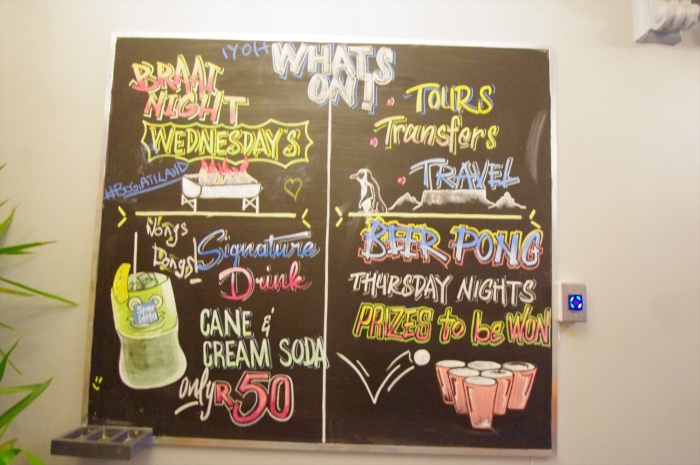 WHATS
ON!
BRAAI
NIGHT
WEDNESDAY'S
TOURS
Transfers
TRAVEL
Signature
Drink
CANE &
CREAM SODA
only R50
BEER PONG
THURSDAY NIGHTS
PRIZES to be WON